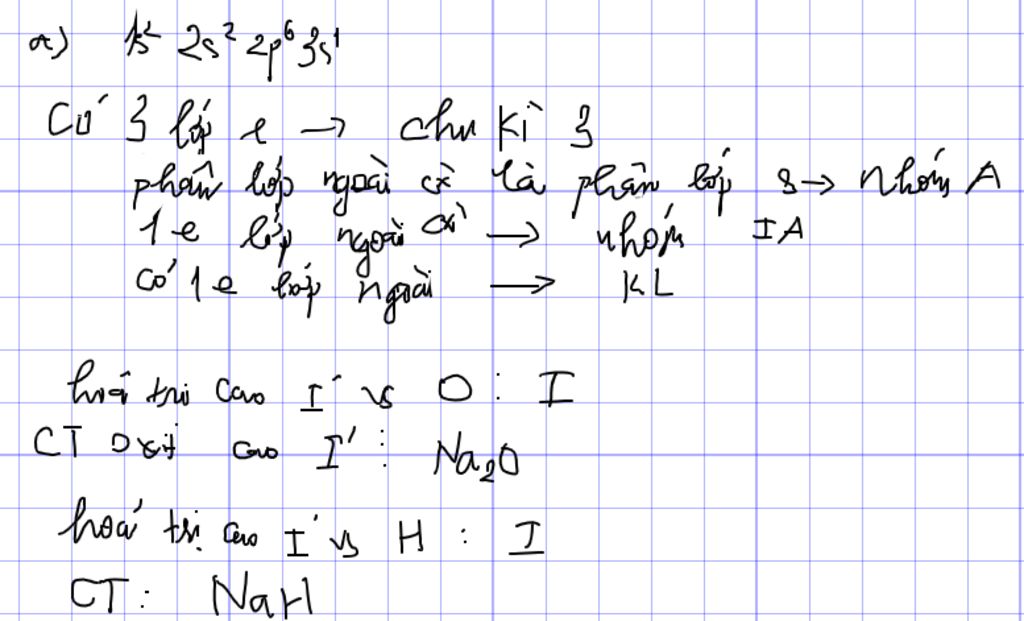 a) 1s² 2s² 2p⁶ 3s¹
Có 3 lớp e → chu kì 3
phân lớp ngoài cù là phân lớp s → nhóm A
1e lớp ngoài cù → nhóm IA
có 1e lớp ngoài → KL
hoá trị cao I' vs O : I
CT oxit cao I' : Na₂O
hoá trị cao I' vs H : I
CT : NaH